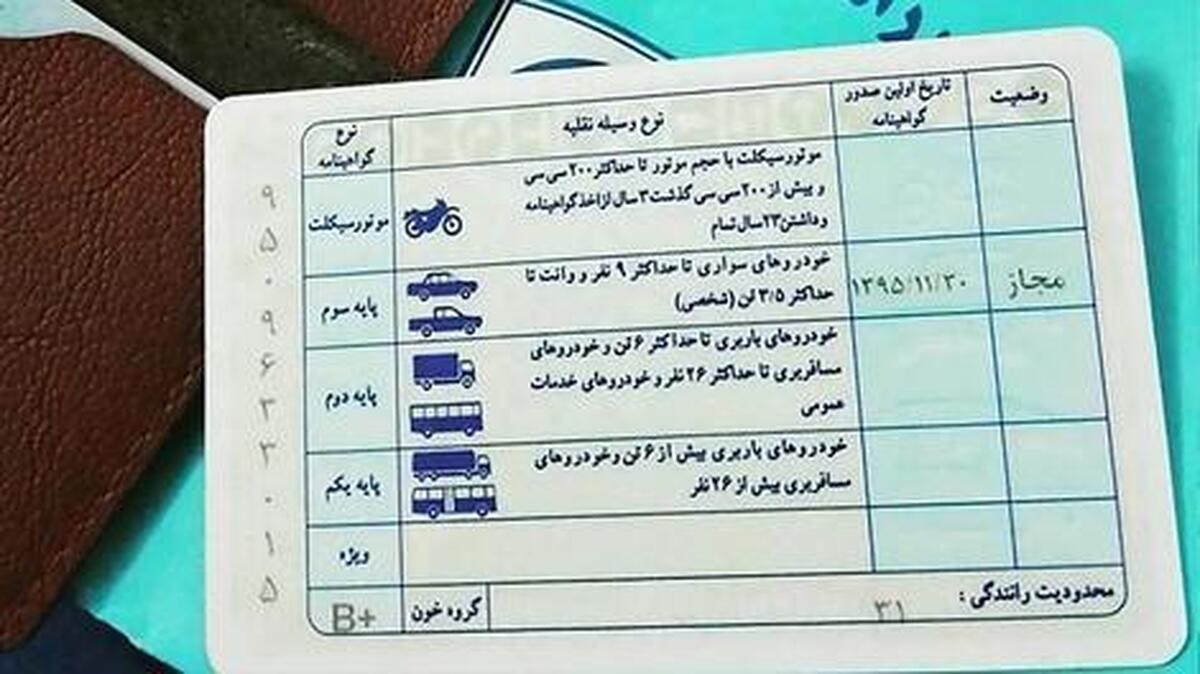 وضعیت
تاریخ اولین صدور
گواهینامه
نوع وسیله نقلیه
نوع
گواهینامه
موتورسیکلت با حجم موتور تا حداکثر ۲۰۰ سی سی
و بیش از ۲۰۰ سی سی گذشت ۳ سال از اخذ گواهینامه
و داشتن ۲۳ سال تمام
موتورسیکلت
مجاز
۱۳۹۵/۱۱/۳۰
خودروهای سواری تا حداکثر ۹ نفر و وانت تا
حداکثر ۳/۵ تن (شخصی)
پایه سوم
خودروهای باربری تا حداکثر ۶ تن و خودروهای
مسافربری تا حداکثر ۲۶ نفر و خودروهای خدمات
عمومی
پایه دوم
خودروهای باربری بیش از ۶ تن و خودروهای
مسافربری بیش از ۲۶ نفر
پایه یکم
ویژه
محدودیت رانندگی : ۳۱
گروه خون
B+
۹
۵
۰
۹
۶
۳
۳
۰
۱
۵